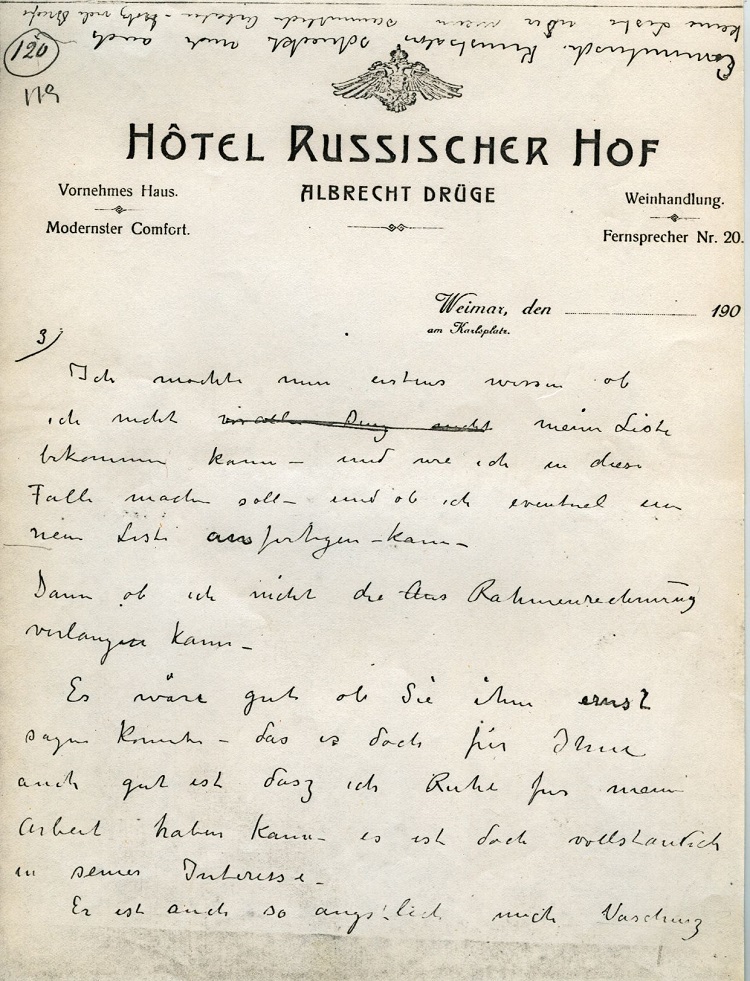 Commetersche Kunstsalon schickt mir auch
keine Liste über meine sammtliche Arbeiten – trotz viele Briefe
120
119
HÔTEL RUSSISCHER HOF
ALBRECHT DRÜGE
Vornehmes Haus.
Modernster Comfort.
Weinhandlung.
Fernsprecher Nr. 20.
Weimar, den 190
am Karlsplatz.
3)
Ich mochte nun erstens wissen ob
ich nicht meine Liste
bekommen kann – und wie ich in diese
Falle machen soll – und ob ich eventuel eine
neue Liste anfertigen – kann –
Dann ob ich nicht die Rahmenrechnung
verlangen kann –
Es wäre gut ob Sie ihm ernst
sagen konnte – das es doch für Ihnen
auch gut ist dasz ich Ruhe fur meine
Arbeit haben kann – es ist doch vollstandich
in seines Interesse –
Er ist auch so angstlich mich